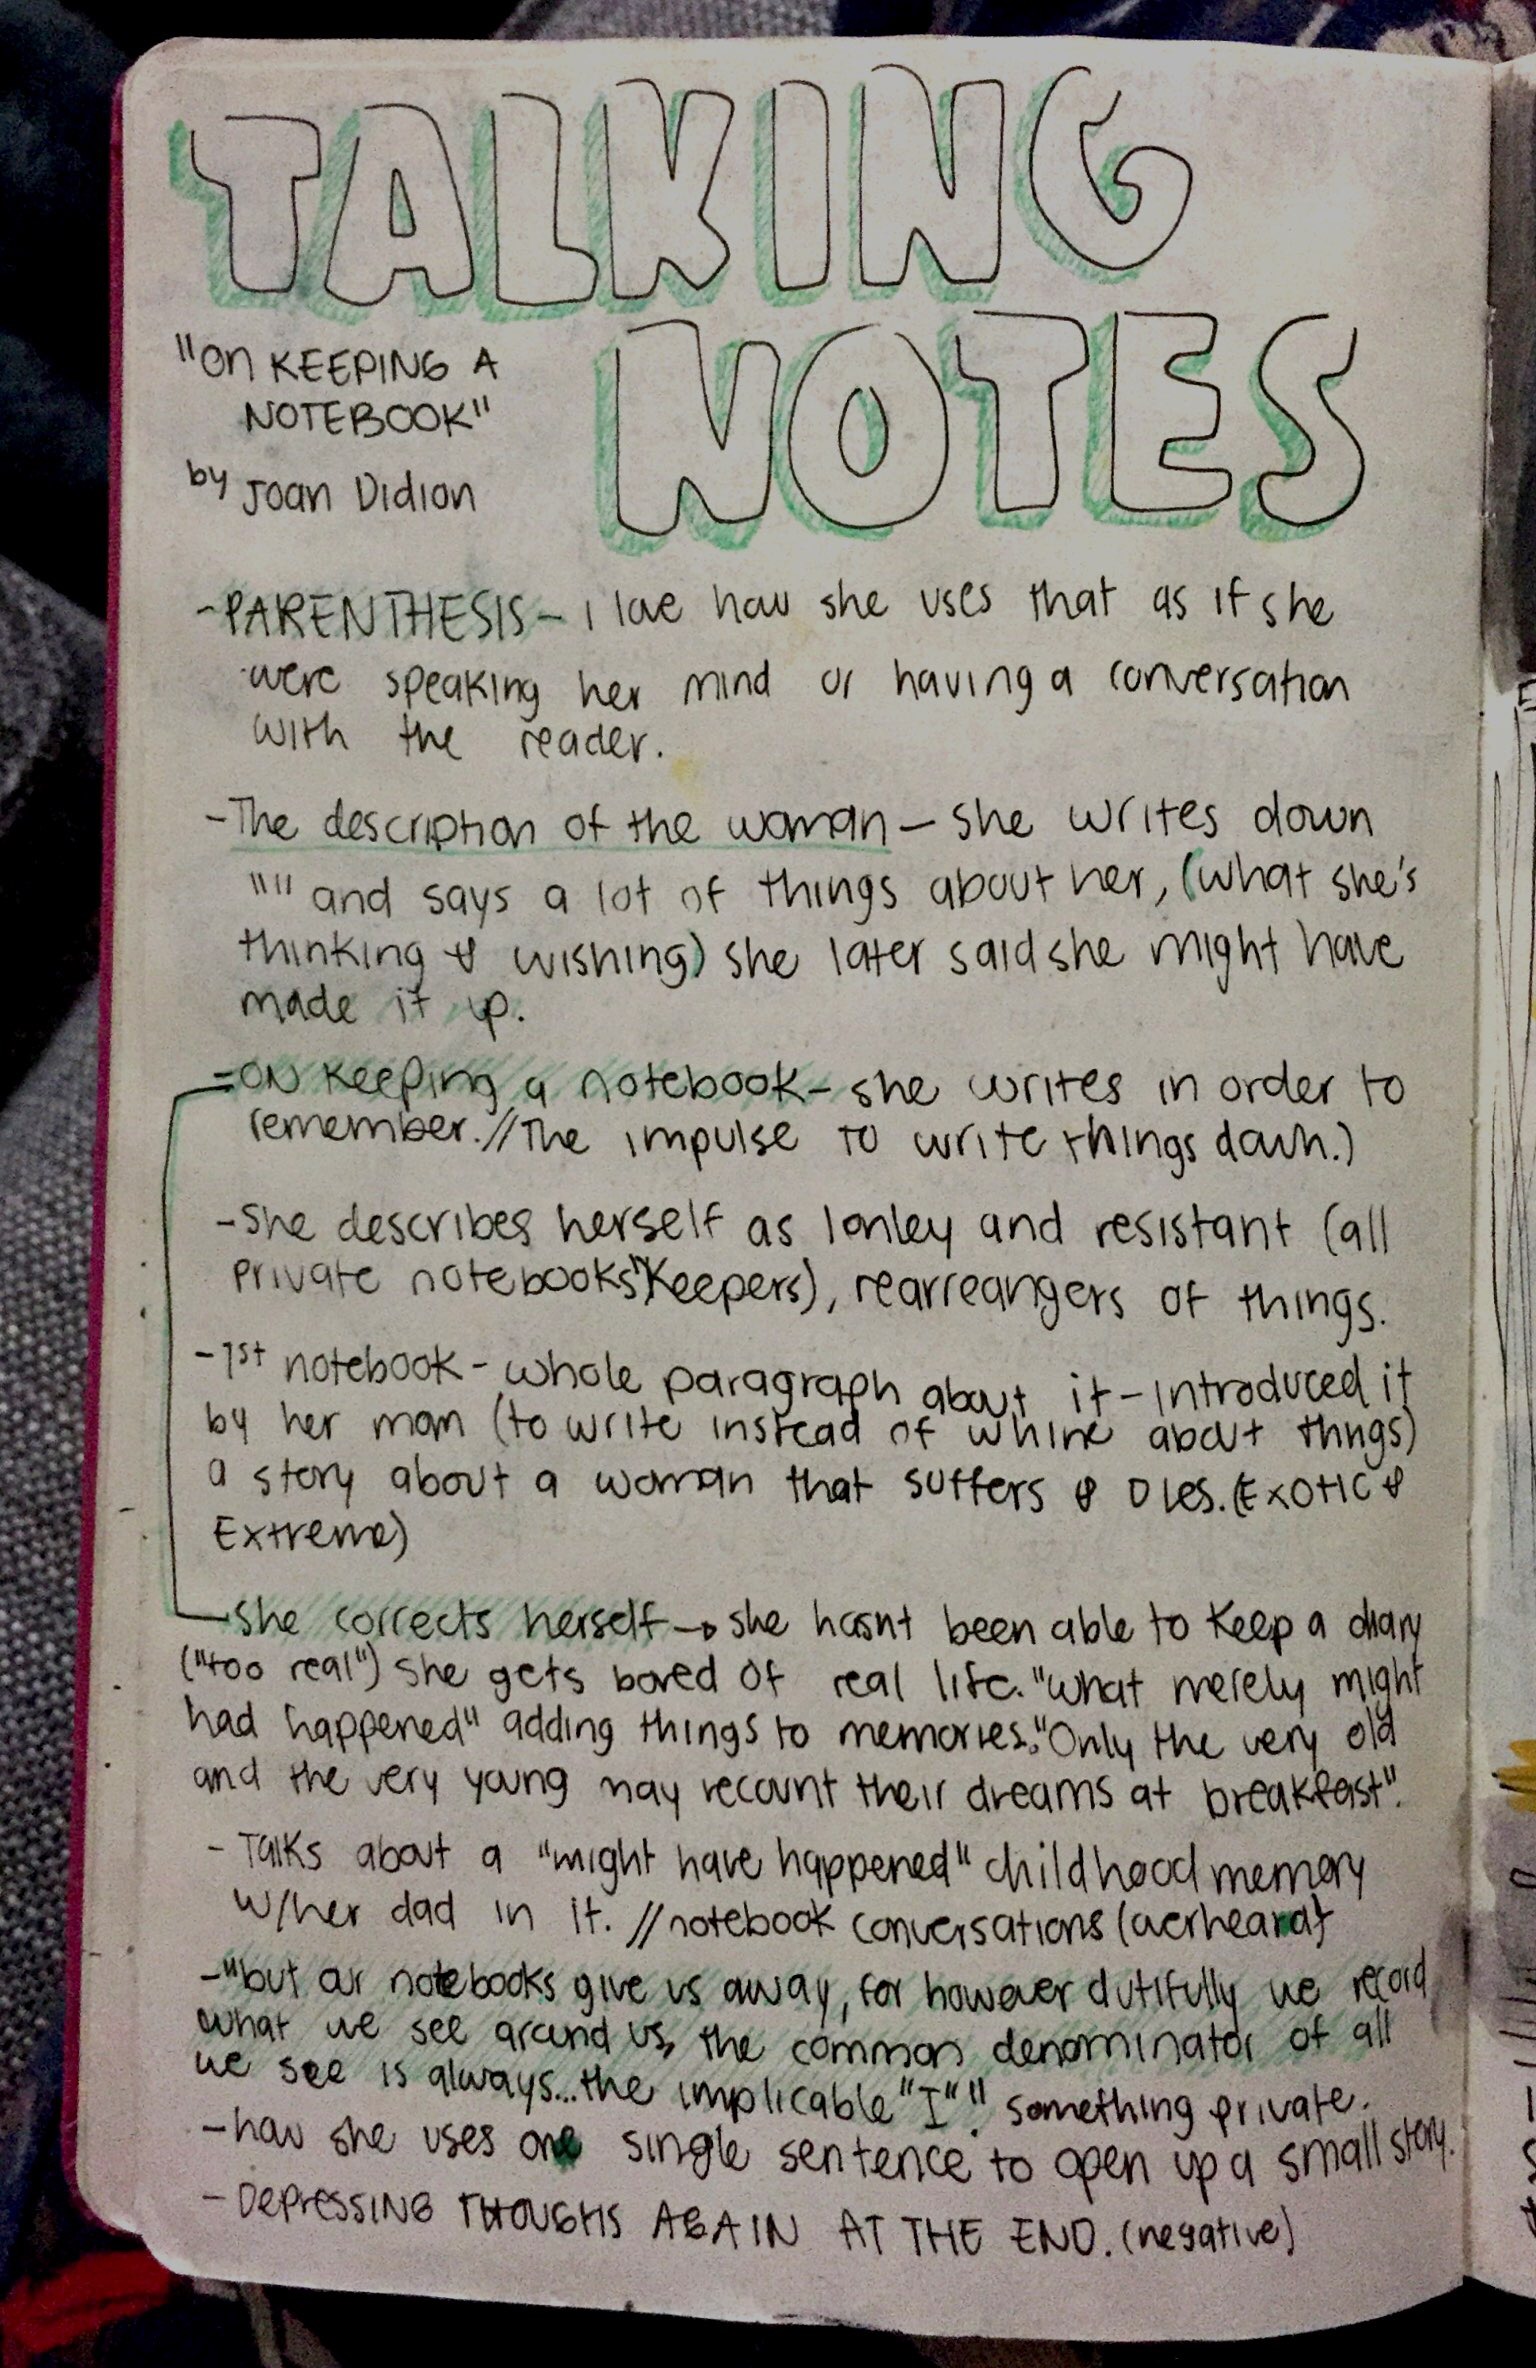 TALKING
NOTES
"On KEEPING A
NOTEBOOK"
by Joan Didion
- PARENTHESIS - I love how she uses that as if she
were speaking her mind or having a conversation
with the reader.
- The description of the woman - she writes down
"" and says a lot of things about her, (what she's
thinking & wishing) she later said she might have
made it up.
= ON Keeping a notebook - she writes in order to
remember. // The impulse to write things down.)
- She describes herself as lonley and resistant (all
private notebooks" Keepers), rearreangers of things.
- 1st notebook - whole paragraph about it - introduced it
by her mom (to write instead of whine about things)
a story about a woman that suffers & Dies. (Exotic &
Extreme)
She corrects herself → she hasnt been able to keep a diary
("too real") she gets bored of real life. "what merely might
had happened" adding things to memories. "Only the very old
and the very young may recount their dreams at breakfast".
- Talks about a "might have happened" childhood memory
w/her dad in it. // notebook conversations (overheard)
- "but our notebooks give us away, for however dutifully we record
what we see around us, the common denominator of all
we see is always... the implicable "I"". something private.
- how she uses one single sentence to open up a small story.
- DEPRESSING THOUGHTS AGAIN AT THE END. (negative)